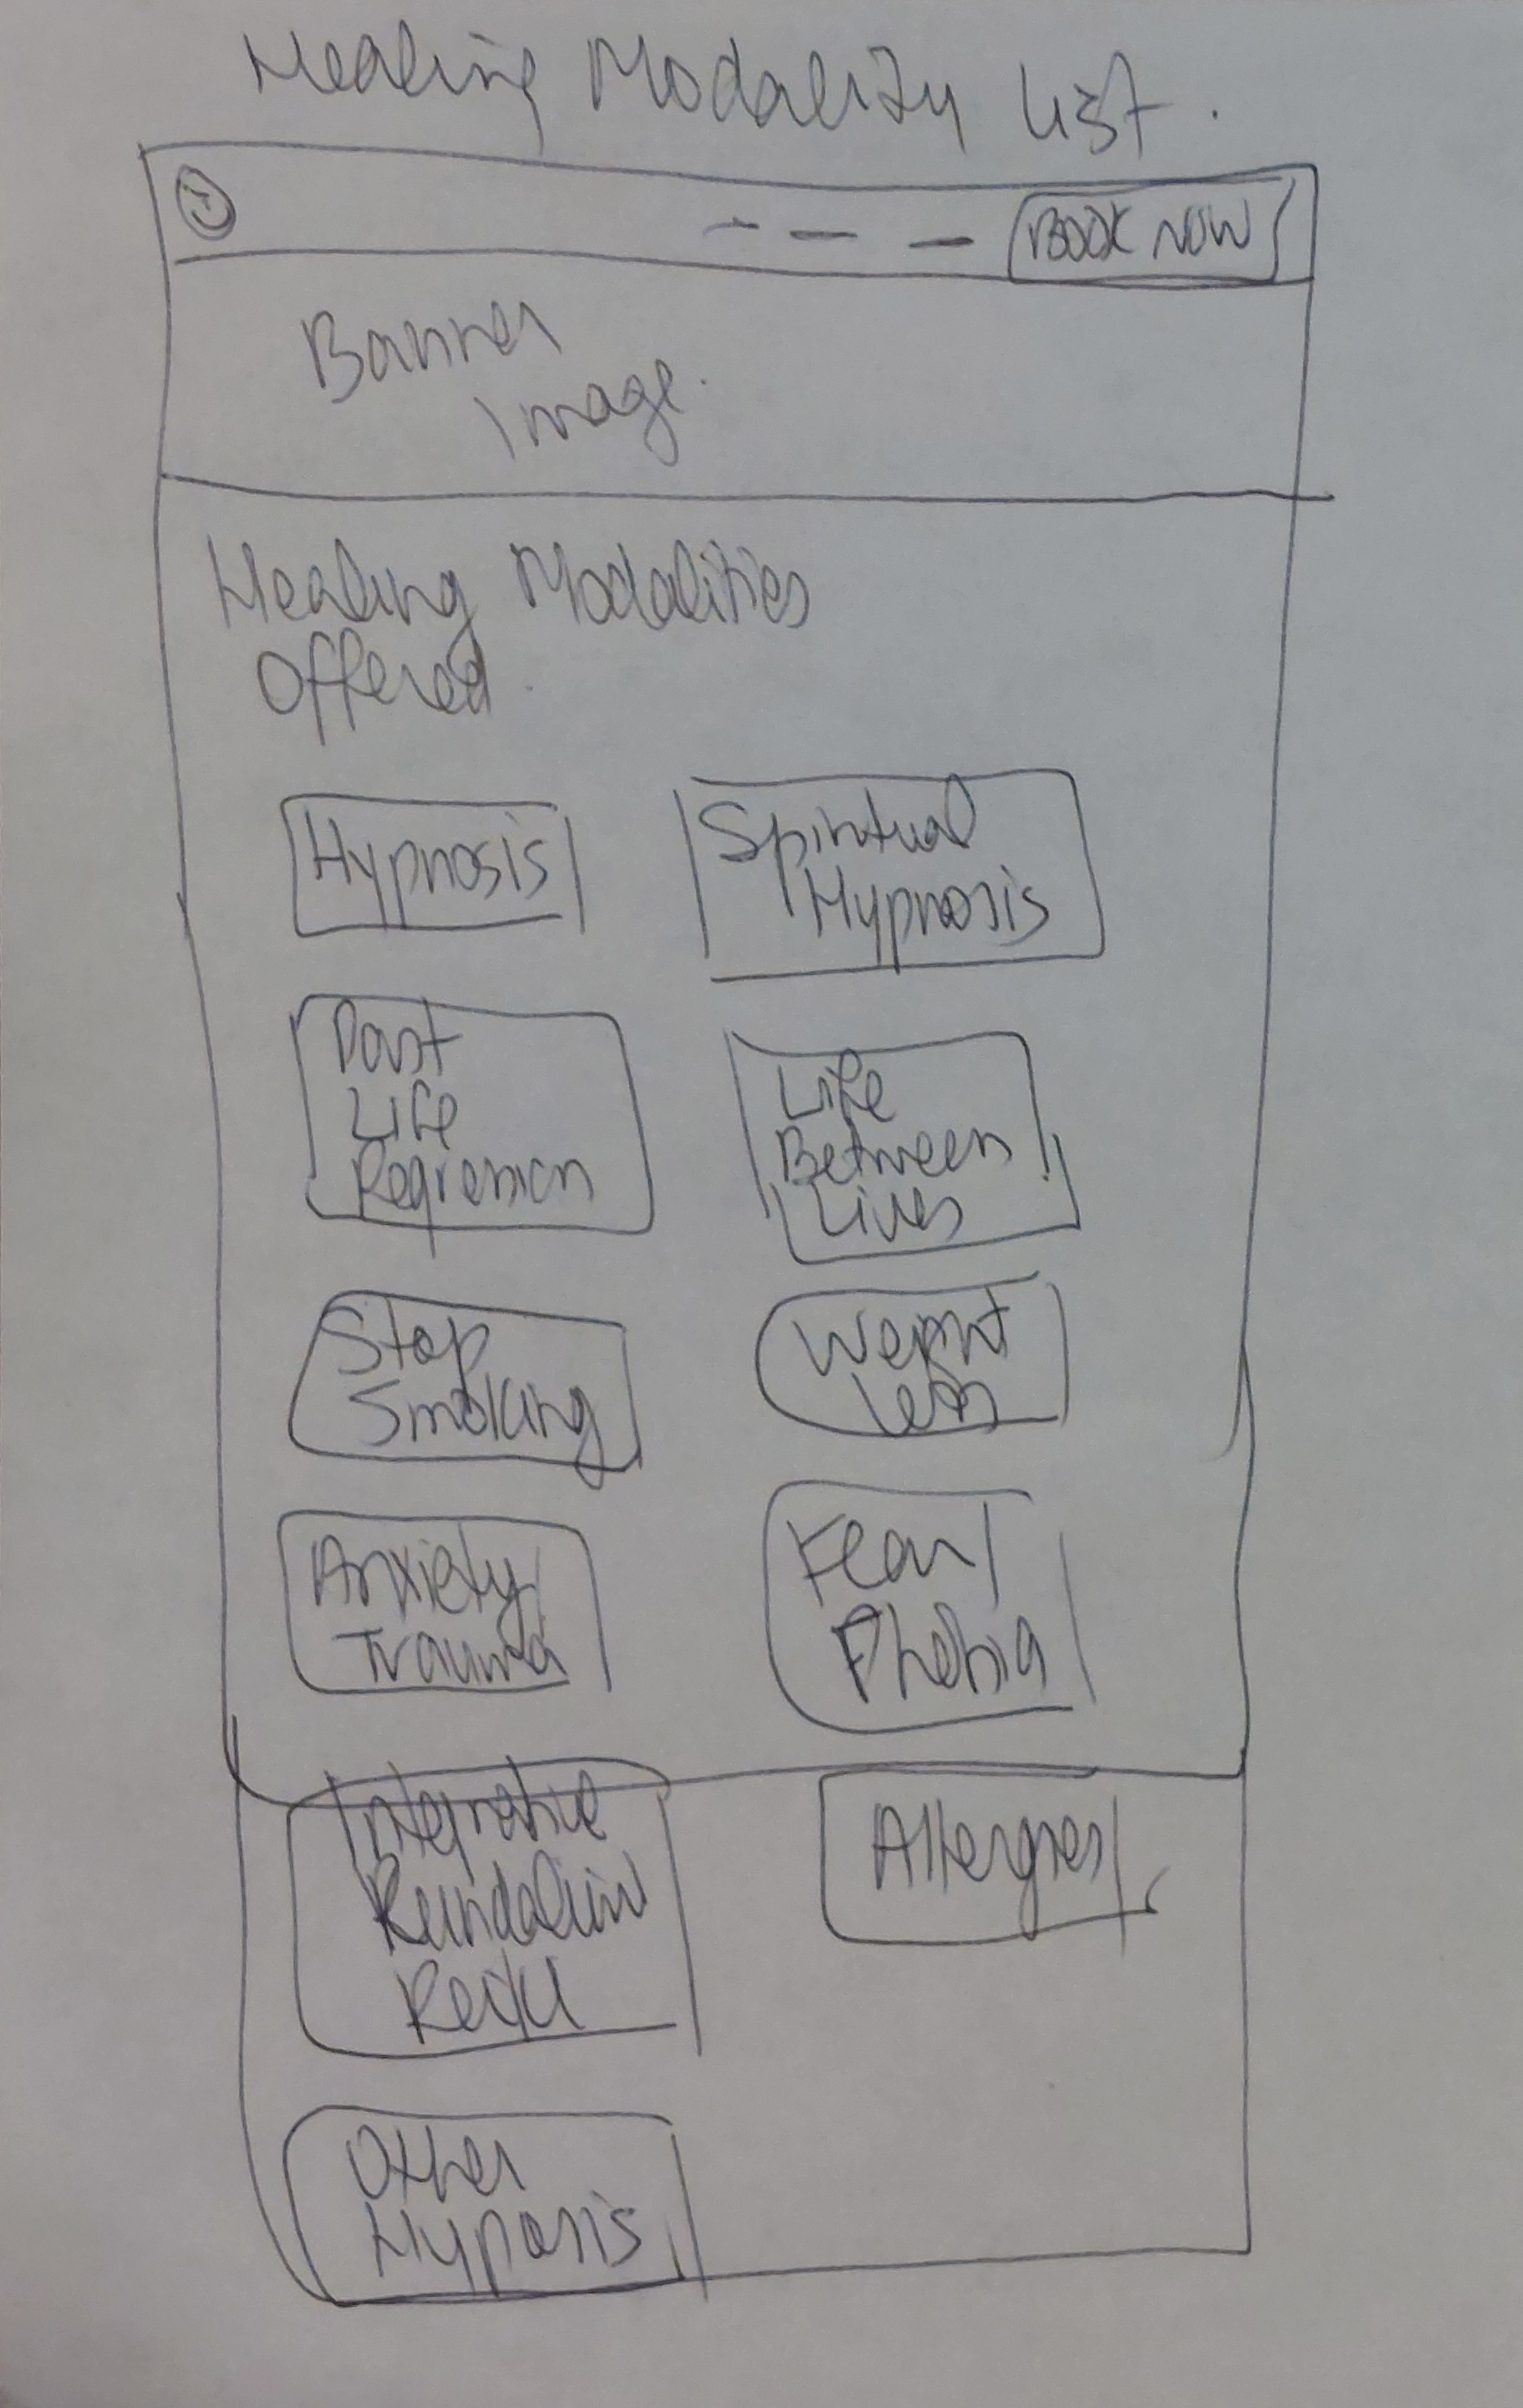 Healing Modality List.
BOOK NOW
Banner
Image.
Healing Modalities
Offered
Hypnosis
Spiritual
Hypnosis
Past
Life
Regression
Life
Between
Lives
Stop
Smoking
Weight
Loss
Anxiety/
Trauma
Fear/
Phobia
Integrative
Kundalini
Reiki
Allergies
Other
Hypnosis